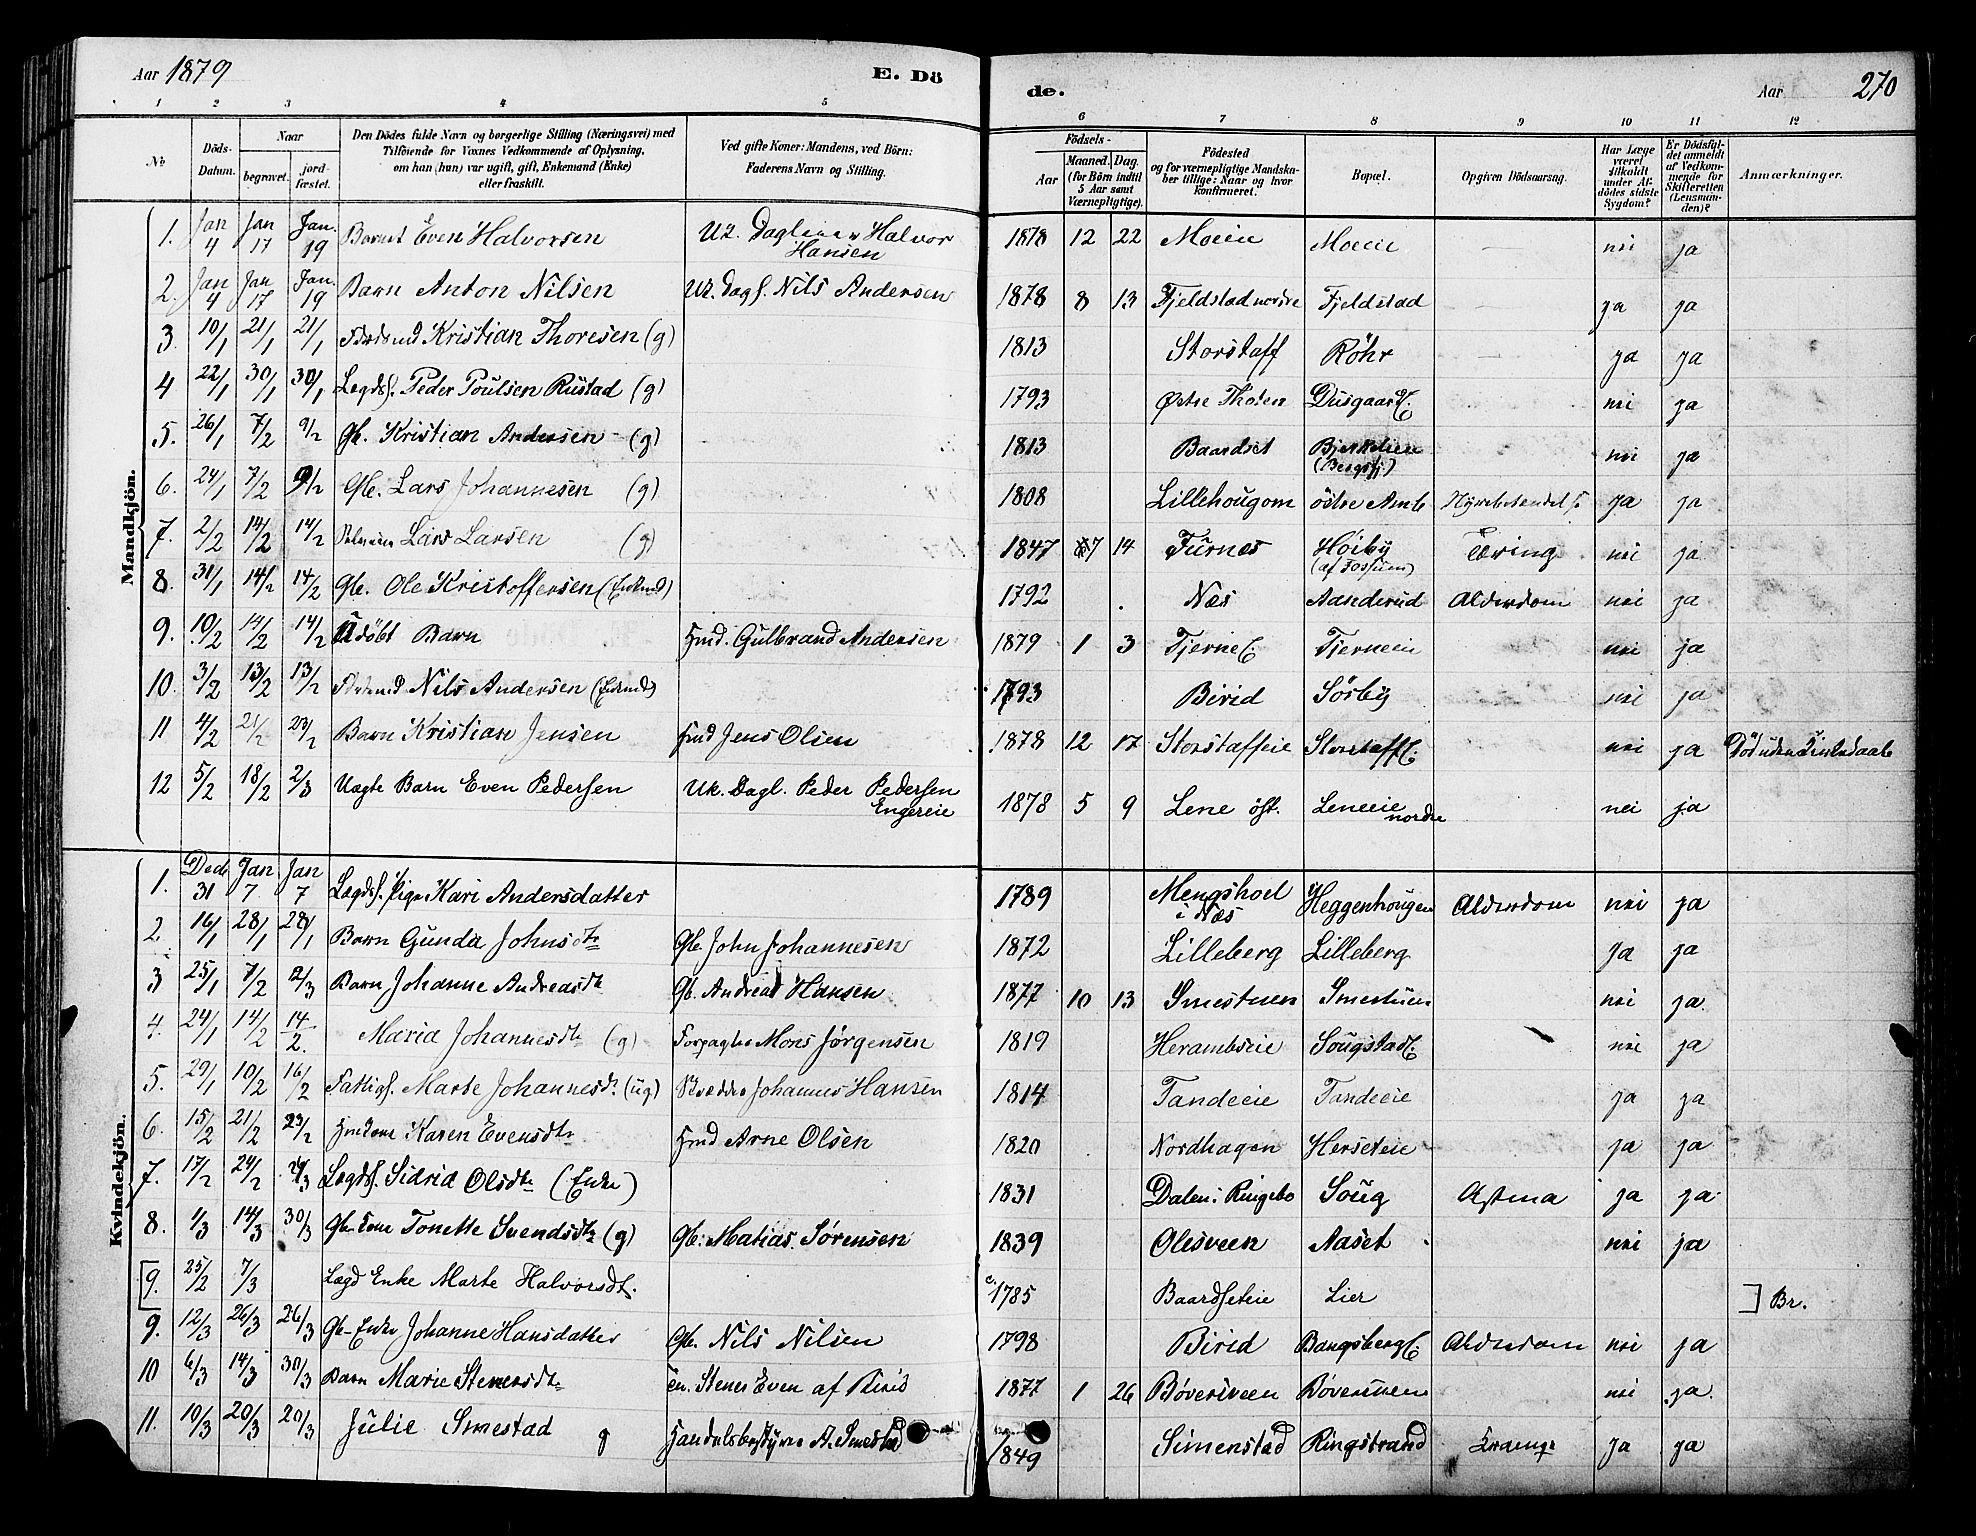 Aar 1879 E. Dö de. Aar 270
1 2 3 4 5 6 7 8 9 10 11 12
No
Döds-Datum.
Naar
begravet.
jord-fæstet.
Den Dödes fulde Navn og borgerlige Stilling (Næringsvei) med
Tilföiende for Voxnes Vedkommende af Oplysning,
om han (hun) var ugift, gift, Enkemand (Enke)
eller fraskilt.
Ved gifte Koner: Mandens, ved Börn:
Faderens Navn og Stilling.
Födsels-
Aar
Maaned. Dag.
(for Börn indtil
5 Aar samt
Værnepligtige).
Födested
og for værnepligtige Mandskaber tillige: Naar og hvor
konfirmeret.
Bopæl.
Opgiven Dödsaarsag.
Har Læge været tilkaldt under Afdödes sidste Sygdom?
Er Dödsfaldet anmeldt af Vedkommende for Skifteretten (Lensmanden)?
Anmærkninger.
Mandkjön.
1. Jan 4 Jan 17 Jan. 19 Barnet Even Halvorsen Halvor Hansen 1878 12 22 Moeie Moeie nei ja
2. Jan 4 Jan 17 Jan. 19 Barn Anton Nilsen Dagl. Nils Andersen 1878 8 13 Fjeldstad nordre Fjeldstad ja ja
3. 10/1 21/1 21/1 Kristian Thoresen (g) 1813 Storstaff Röhr ja ja
4 22/1 30/1 30/1 Lægdsl. Peder Poulsen Rustad (g) 1793 Østre Thoten nei ja
5. 26/1 7/2 9/2 Gb. Kristian Andersen (g) 1813 Baardset Bjerkelien nei ja
6. 24/1 7/2 9/2 Gb. Lars Johannesen (g) 1808 Lillehougom östre Amb ja ja
7. 2/2 14/2 14/2 Lars Larsen (g) 1847 7 14 Furnes Höiby (af Fossum) Tæring nei ja
8. 31/1 14/2 14/2 Gb. Ole Kristoffersen (Enkmd) 1792 Næs Aanderud Alderdom nei ja
9. 10/2 14/2 14/2 Udöbt Barn Hmd. Gulbrand Andersen 1879 1 3 Tjerne Tjerneie nei ja
10. 3/2 13/2 13/2 Nils Andersen (Enkmd) 1793 Birid Sörby nei ja
11 4/2 21/2 23/2 Barn Kristian Jensen Hmd Jens Olsen 1878 12 17 Storstaffeie nei ja
12 5/2 18/2 2/3 Uægte Barn Even Pedersen Uk. Dagl. Peder Pedersen Engereie 1878 5 9 Lene öst. Leneeie nordre nei ja
Kvindekjön.
1. Decb 31 Jan 7 Jan 7 Lægdsl. Pige Kari Andersdatter 1789 Mengshoel i Næs Heggenhougen Alderdom nei ja
2 16/1 28/1 28/1 Barn Gunda Johnsdtr Gb. John Johannesen 1872 Lilleberg Lilleberg ja ja
3 25/1 7/2 2/3 Barn Johanne Andreasdtr Gb. Andreas Hansen 1877 10 13 Smestuen Smestuen nei ja.
4. 24/1 14/2 14/2. Maria Johannesdtr (g) Forpagter Mons Jørgensen 1819 Herambseie nei ja
5. 29/1 10/2 16/2 Fattigl. Marte Johannesdtr (ug) Skrædder Johannes Hansen 1814 Tandeeie Tandeeie ja ja
6. 15/2 21/2 23/2 Karen Evensdtr Hmd Arne Olsen 1820 Nordhagen Herseteie ja ja
7. 17/2 24/2 Lægdsl. Sidrid Olsdtr (Enke) 1831 Dalen i Ringebo Soug Astma ja ja
8. 1/3 14/3 30/3 Gb-Kone Tonette Svendsdtr (g) Gb. Matias Sørensen 1839 Olesveen Aaset nei ja
[9. 25/2 7/3 Lægd Enke Marte Halvorsdt. c. 1785 Baardseteie Lier ] Br.
9. 12/3 26/3 26/3 Gb-Enke Johanne Hansdatter Gb. Nils Nilsen 1798 Birid Alderdom nei ja
10 6/3 14/3 30/3 Barn Marie Stenersdtr Stener Even af Birid 1877 1 26 Böversveen Böversveen nei ja.
11. 10/3 20/3 20/3 Julie Smestad g Handelsbestyrer A. Smestad 1849 Simenstad Ringstrand Krampe ja ja